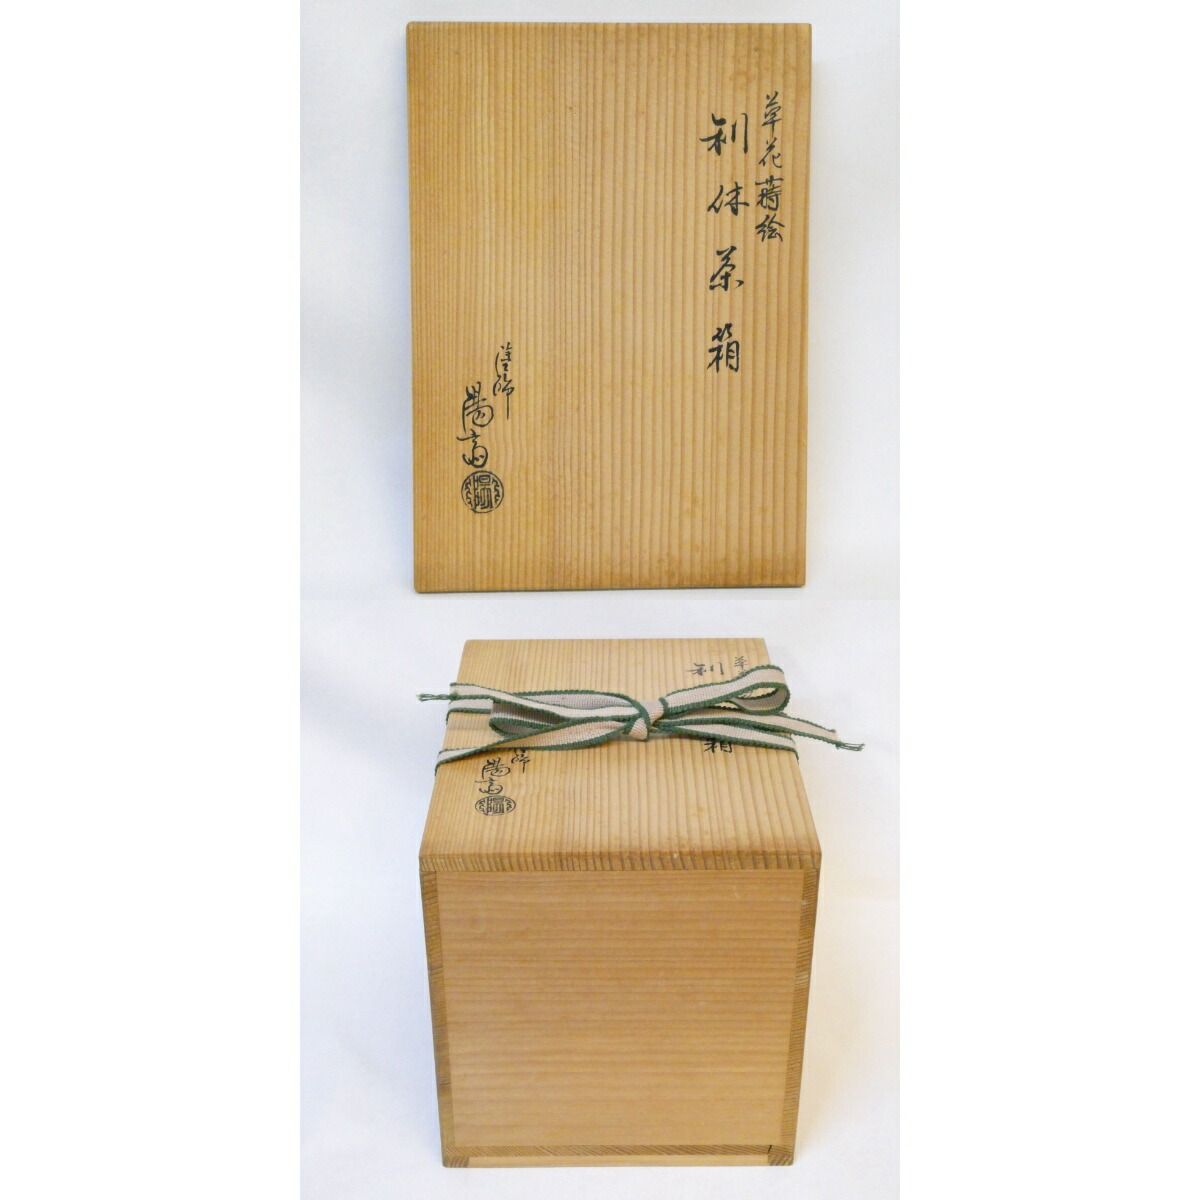 草花蒔絵
利休茶箱
塗師
陽斎
草
利
箱
師
陽斎